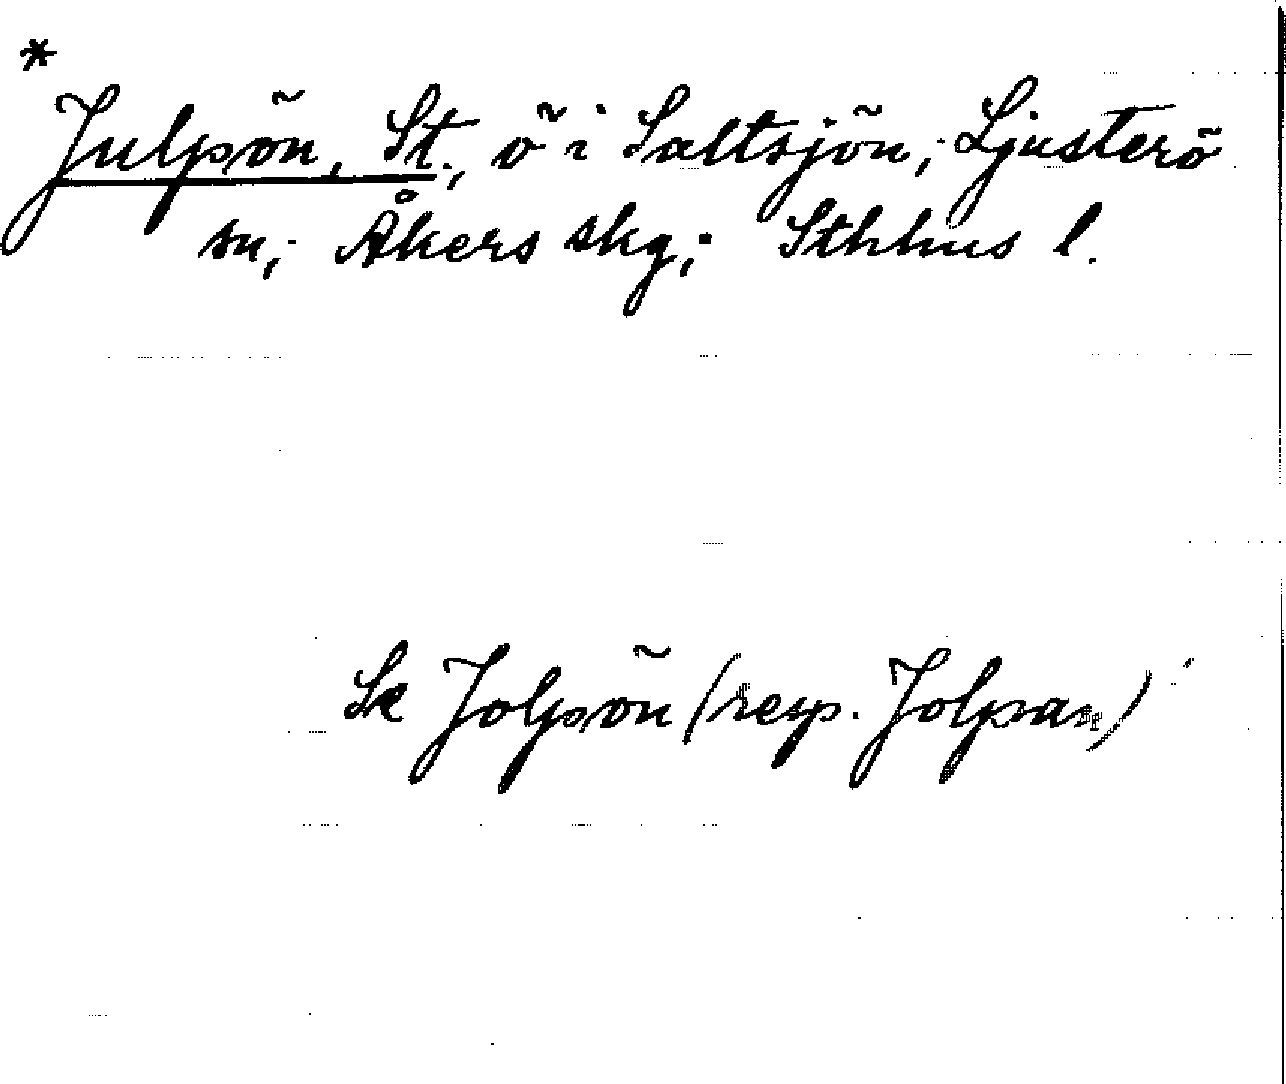 *
Julpön, St., ö i Saltsjön, Ljusterö
sn, Åkers skg, Sthlms l.
Se Jolpön (resp. Jolpan)